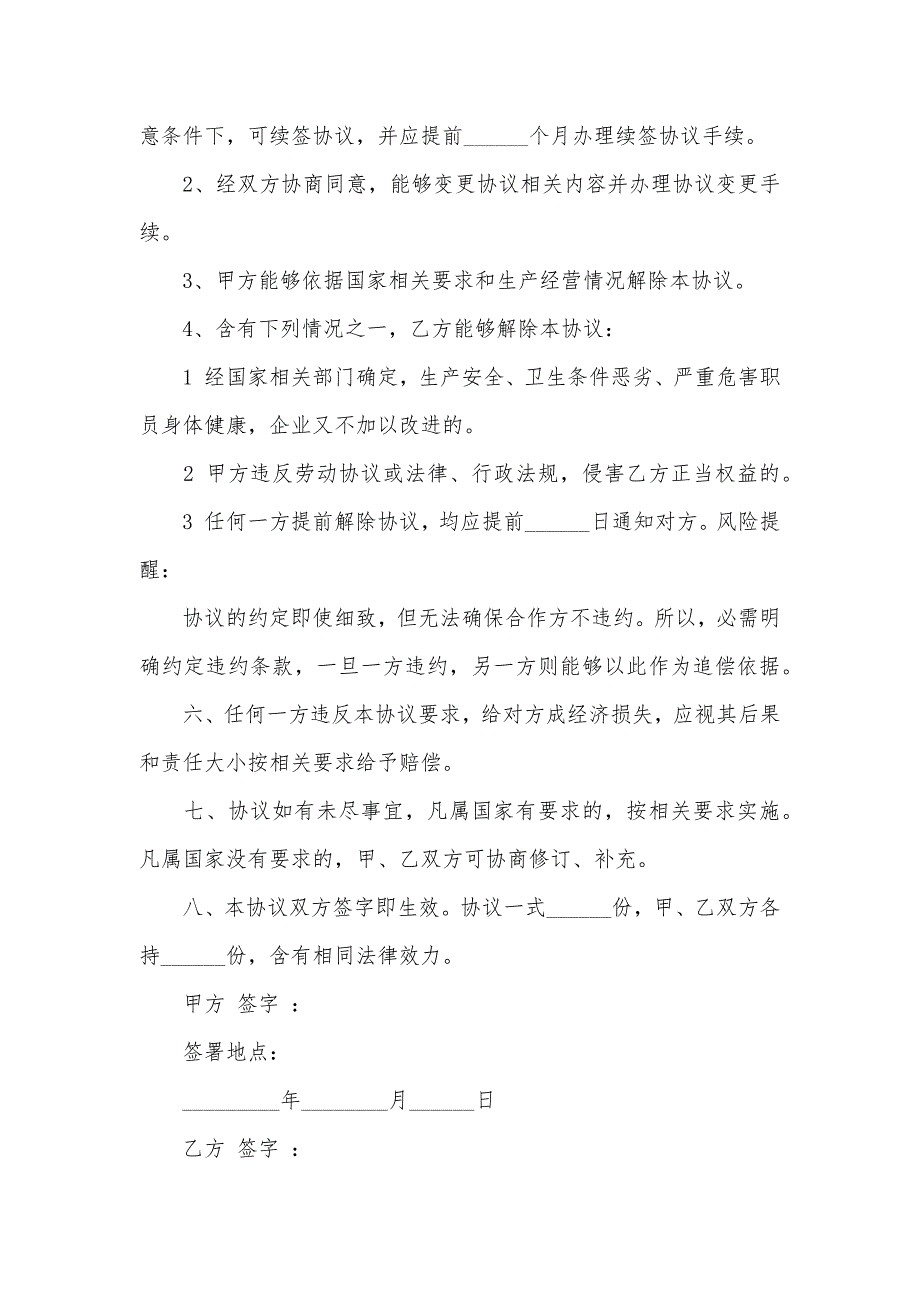 意条件下，可续签协议，并应提前______个月办理续签协议手续。
2、经双方协商同意，能够变更协议相关内容并办理协议变更手
续。
3、甲方能够依据国家相关要求和生产经营情况解除本协议。
4、含有下列情况之一，乙方能够解除本协议：
1 经国家相关部门确定，生产安全、卫生条件恶劣、严重危害职
员身体健康，企业又不加以改进的。
2 甲方违反劳动协议或法律、行政法规，侵害乙方正当权益的。
3 任何一方提前解除协议，均应提前______日通知对方。风险提
醒：
协议的约定即使细致，但无法确保合作方不违约。所以，必需明
确约定违约条款，一旦一方违约，另一方则能够以此作为追偿依据。
六、任何一方违反本协议要求，给对方成经济损失，应视其后果
和责任大小按相关要求给予赔偿。
七、协议如有未尽事宜，凡属国家有要求的，按相关要求实施。
凡属国家没有要求的，甲、乙双方可协商修订、补充。
八、本协议双方签字即生效。协议一式______份，甲、乙双方各
持______份，含有相同法律效力。
甲方 签字 ：
签署地点：
_________年________月______日
乙方 签字 ：